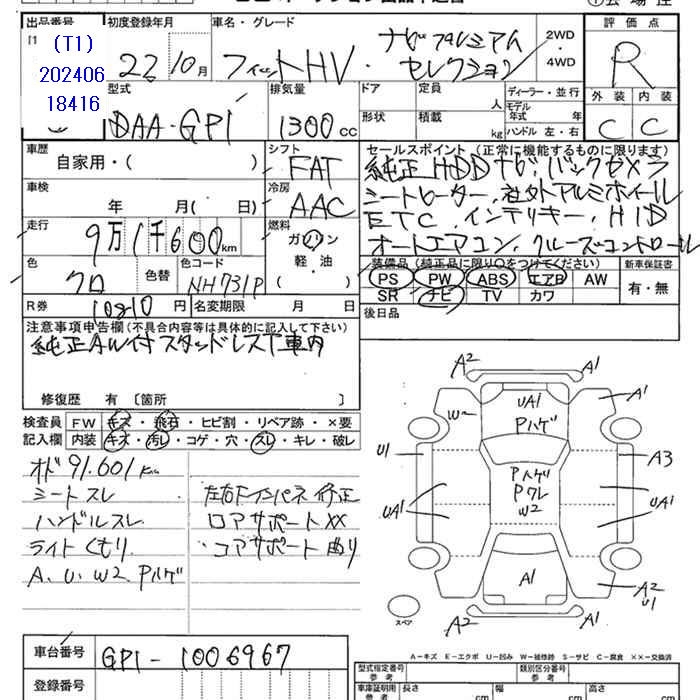 出品番号 初度登録年月 車名・グレード 評価点
(T1)
202406
18416
22 10月 フィットHV・ナビプレミアムセレクション 2WD・4WD R
型式 排気量 ドア 定員 人 ディーラー・並行 外装 内装
DAA-GP1 1300cc 形状 積載 kg モデル年式 年 ハンドル 左・右 C C
車歴 シフト セールスポイント(正常に機能するものに限ります)
自家用・( ) FAT 純正HDDナビ.バックカメラ
車検 冷房 シートヒーター.社外アルミホイール
年 月( 日) AAC ETC.インテリキー.HID
走行 燃料 オートエアコン.クルーズコントロール
9万1千600km ガソリン
軽・油
( )
色 色替 色コード 装備品(純正品に限り○をつけてください) 新車保証書
クロ NH731P PS PW ABS エアB AW 有・無
SR ナビ TV カワ
R券 10810円 名変期限 月 日 後日品
注意事項申告欄(不具合内容等は具体的に記入して下さい)
純正AW付スタッドレスT車内
修復歴 有〔箇所 〕
検査員 FW キズ・飛石・ヒビ割・リペア跡・×要
記入欄 内装 キズ・汚レ・コゲ・穴・スレ・キレ・破レ
オド91.601km
シートスレ 左右Fインパネ修正
ハンドルスレ ロアサポートXX
ライトくもり コアサポート曲り
A.U.W2.Pハゲ
A2 A1
UA1 A1
W2 Pハゲ
U1 A3
Pハゲ
Pワレ
W2
UA1 UA1
A1 A2
U1
A2 A1
スペア
A-キズ E-エクボ U-凹み W-補修跡 S-サビ C-腐食 ××-交換済
車台番号 GP1-1006967
登録番号
型式指定番号 参考 類別区分番号 参考
車庫証明用 参考 長さ cm 幅 cm 高さ cm